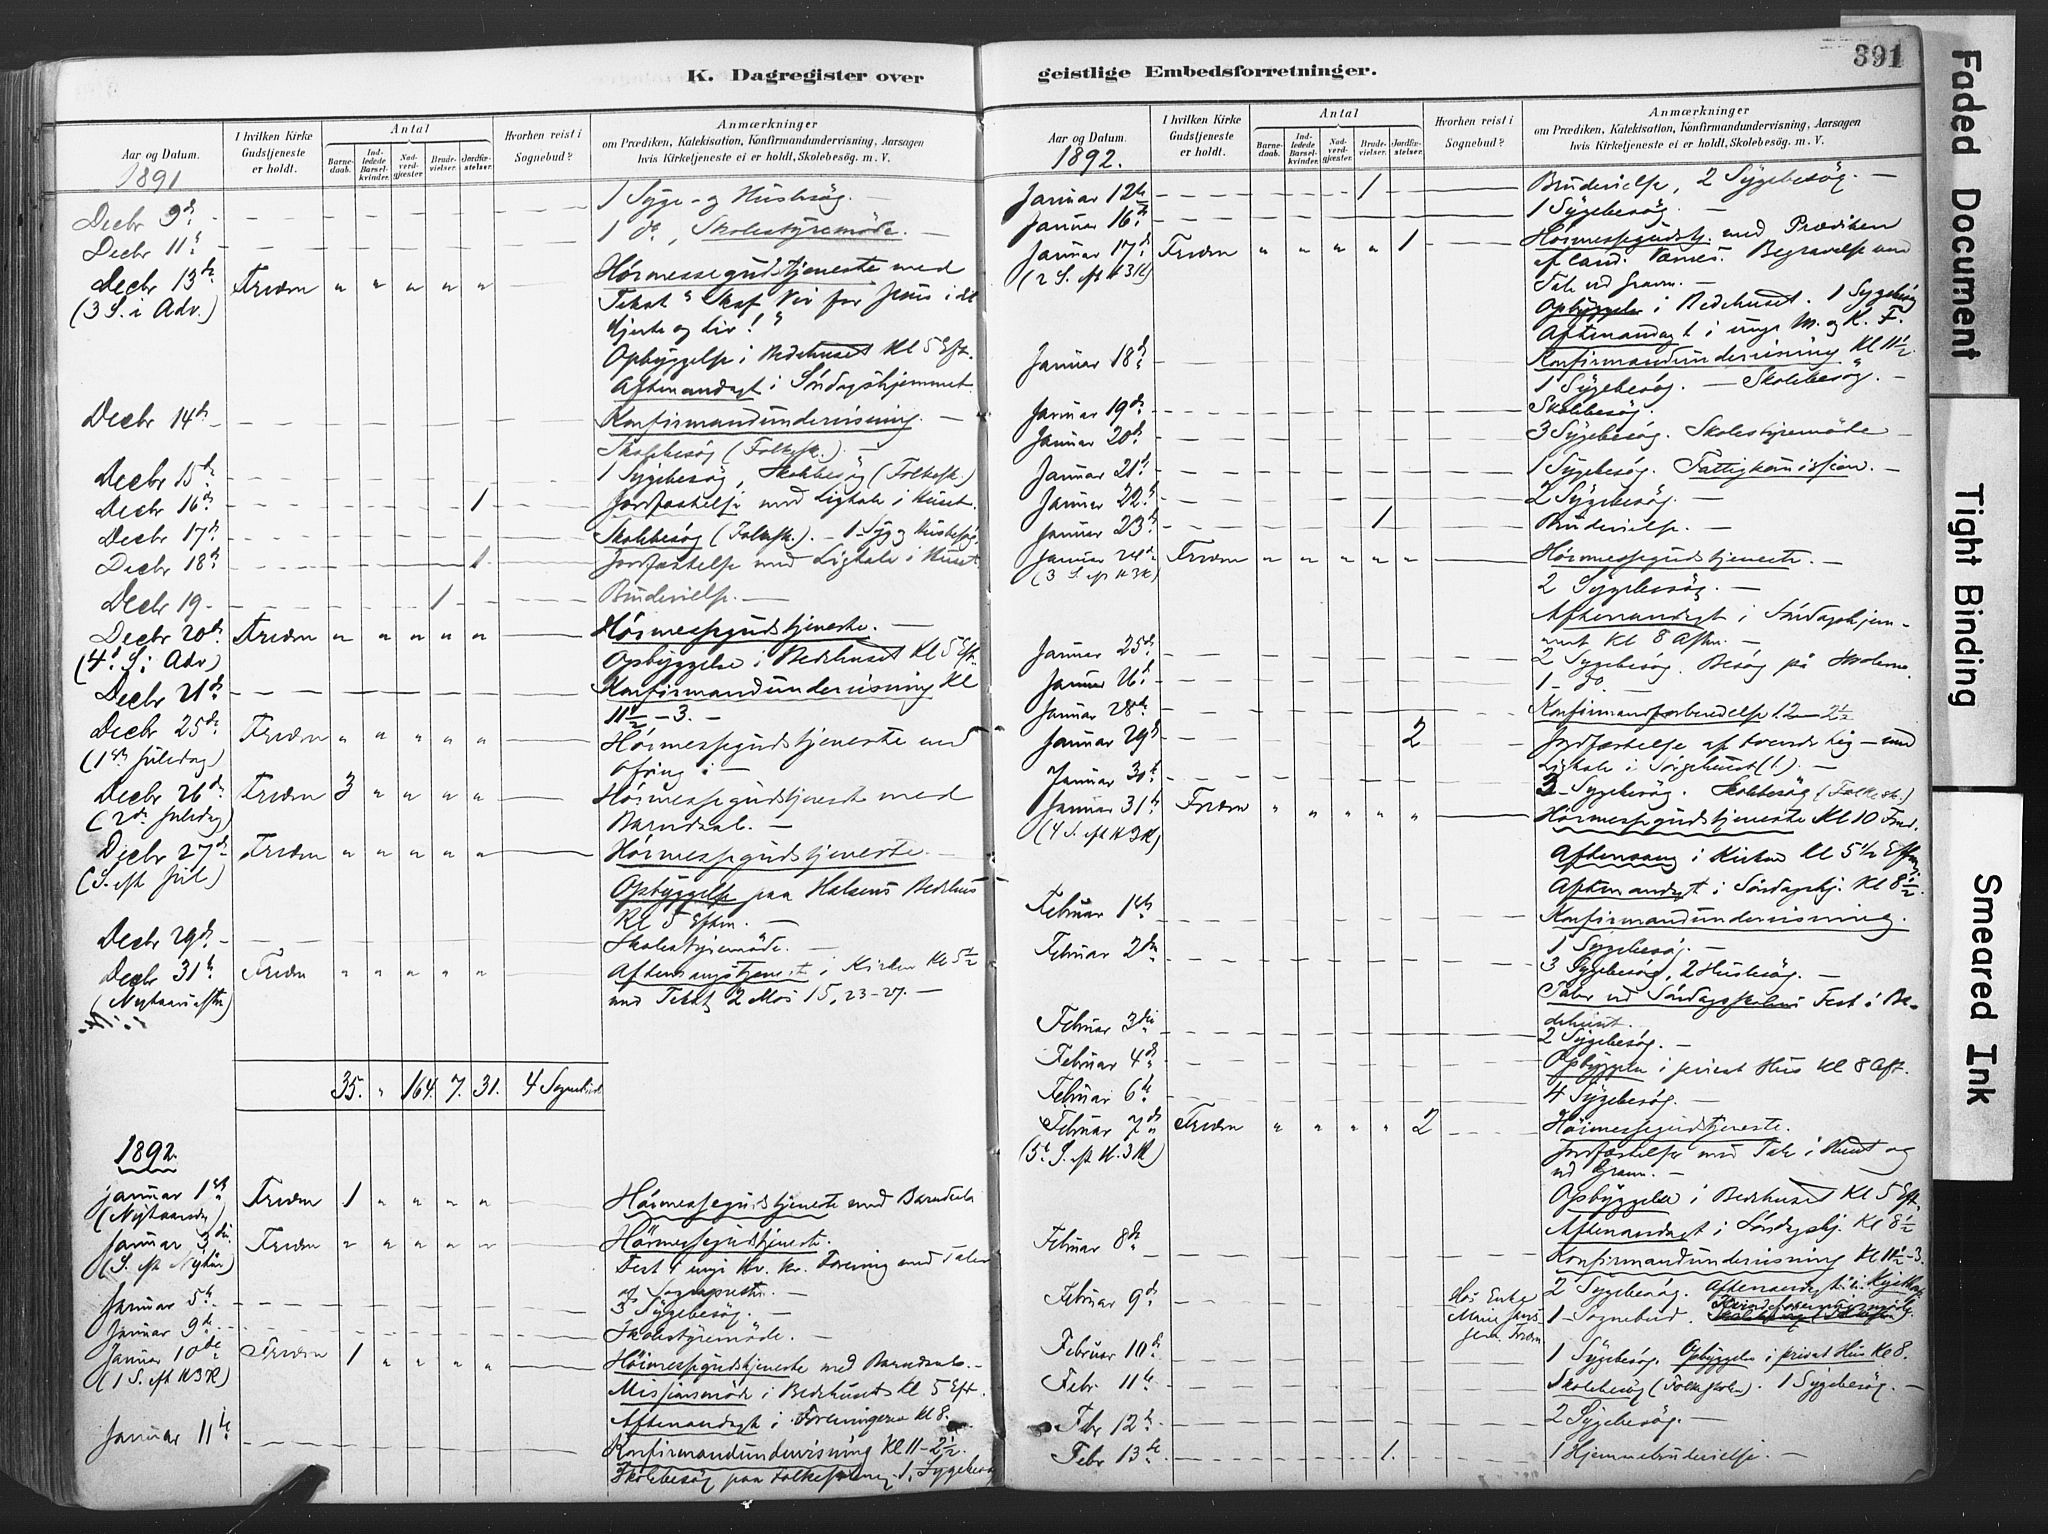 K. Dagregister over
Aar og Datum.
1891
I hvilken Kirke Gudstjeneste er holdt.
Antal
Barnedaab.
Indledede Barselkvinder.
Nadverdgjæster
Brudevielser.
Jordfæstelser.
Hvorhen reist i Sognebud?
Anmærkninger
om Prædiken, Katekisation, Konfirmandundervisning, Aarsagen
hvis Kirketjeneste ei er holdt, Skolebesøg. m. V.
Decbr 9de 1 Syge- og Husbesøg. —
Decbr 11te 1 do, Skolestyremöde. —
Decbr 13de Trværn " " " " " Höimessegudstjeneste med
(3 S. i Adv.) Tekst "
Hjerte og Liv! "
Opbyggelse i Bedehuset Kl 5 Eft.
Aftenandagt i Söndagshjemmet
Decbr 14de Konfirmandundervisning. —
Skolebesøg (Folkesk.) —
Decbr 15de 1 Sygebesøg, Skolebesøg (Folkesk.)
Decbr 16de 1 Jordfæstelse med Ligtale i Huset.
Decbr 17de Skolebesøg (Folkesk.) — 1 Syg og Husbesøg
Decbr 18de 1 Jordfæstelse med Ligtale i Huset
Decbr 19 — 1 Brudevielse. —
Decbr 20de " " " " " Höimessegudstjeneste. —
(4de S. i Adv) Opbyggelse i Bedehuset Kl 5 Eft.
Decbr 21de Konfirmandundervisning Kl
11½ — 3. —
Decbr 25de " " " " " Höimessegudstjeneste med
(1ste Juledag) Ofring. —
Decbr 26de 3 " " " " Höimessegudstjeneste med
(2den Juledag) Barnedaab. —
Decbr 27de " " " " " Höimessegudstjeneste. —
(S. eft Jul.) Opbyggelse paa Halsens Bedehus
Kl 5 Eftm. —
Decbr 29de — Skolestyremöde. —
Decbr 31te " " " " " Aftensangstjeneste i Kirken Kl 5½
(Nytaarsaften) med Tekst 2 Mos 15, 23-27. —
35. " 164. 7. 31. 4 Sognebud
1892.
Januar 1ste 1 " " " " Höimessegudstjeneste med Barnedaab
(Nytaarsdag)
Januar 3die " " " " " Höimessegudstjeneste.
(S. eft Nytaar) Fest i unge Kv. kr. Forening med Taler
af Sognepresten. —
Januar 5te 3 Sygebesøg. —
Januar 9de Skolestyremöde. —
Januar 10de 1 " " " " Höimessegudstjeneste med Barnedaab. —
(1 S. eft H3K) Missionsmöde i Bedehuset Kl 5 Eft.
Aftenandagt i Foreningerne Kl 8.
Januar 11te Konfirmandundervisning Kl 11-2½.
Skolebesøg paa Folkeskolen, 1 Sygebesøg
391
geistlige Embedsforretninger.
Aar og Datum.
1892.
I hvilken Kirke Gudstjeneste er holdt.
Antal
Barnedaab.
Indledede Barselkvinder.
Nadverdgjæster
Brudevielser.
Jordfæstelser.
Hvorhen reist i Sognebud?
Anmærkninger
om Prædiken, Katekisation, Konfirmandundervisning, Aarsagen
hvis Kirketjeneste ei er holdt, Skolebesøg. m. V.
Januar 12te 1 Brudevielse, 2 Sygebesøg. —
Januar 16de 1 Sygebesøg. —
Januar 17de " " " " 1 Höimessegudstj. med Prædiken
(2 S. eft H3K) af Cand. Begravelse med
Tale ved Graven. —
Opbyggelse i Bedehuset. 1 Sygebesøg
Aftenandagt i unge M. og K. F.
Januar 18de Konfirmandundervisning Kl 11½.
1 Sygebesøg. — Skolebesøg. —
Januar 19de Skolebesøg.
Januar 20de 3 Sygebesøg. Skolestyremöde —
Januar 21de 1 Sygebesøg. Fattigkomission. —
Januar 22de 2 Sygebesøg. —
Januar 23de 1 Brudevielse. —
Januar 24de " " " " " Höimessegudstjeneste. —
(3 S. eft H3K) 2 Sygebesøg. —
Aftenandagt i Söndagshjem-
met Kl 8 Aftn. —
Januar 25de 2 Sygebesøg. Besøg på Skolerne.
Januar 26de 1 — do. —
Januar 28de Konfirmandforberedelse 12—2½
Januar 29de 2 Jordfæstelse af tvende Lig — med
Ligtale i Sørgehuset (1). —
Januar 30te 3 — Sygebesøg. Skolebesøg (Folkesk.)
Januar 31te " " " " " Höimessegudstjeneste Kl 10 Form.
(4 S. eft H3K) Aftensang i Kirken Kl 5½ Eftm.
Aftenandagt i Söndagshj. Kl 8½.
Februar 1ste Konfirmandundervisning.
1 Sygebesøg. —
Februar 2den 3 Sygebesøg, 2 Husbesøg. —
Taler ved Söndagsskolens Fest i Be-
dehuset.
Februar 3die 2 Sygebesøg. —
Februar 4de Opbyggelse i privat Hus Kl 8 Aft.
Februar 6te 4 Sygebesøg. —
Februar 7de " " " " 2 Höimessegudstjeneste.
(5te S. eft H.3K) Jordfæstelse med Tale i Huset og
ved Graven. —
Opbyggelse i Bedehuset Kl 5 Eft.
Aftenandagt i Söndagshj. Kl 8½
Februar 8de Konfirmandundervisning Kl 11½-3.
2 Sygebesøg.
Februar 9de Hos Enke 1 — Sognebud.
Februar 10de 1 Sygebesøg. Opbyggelse i privat Hus Kl 8.
Febr. 11te Skolebesøg (Folkeskolen). 1 Sygebesøg. —
Febr 12te 2 Sygebesøg. —
Febr 13de 1. 1 Hjemmebrudevielse. —
Faded Document
Tight Binding
Smeared Ink